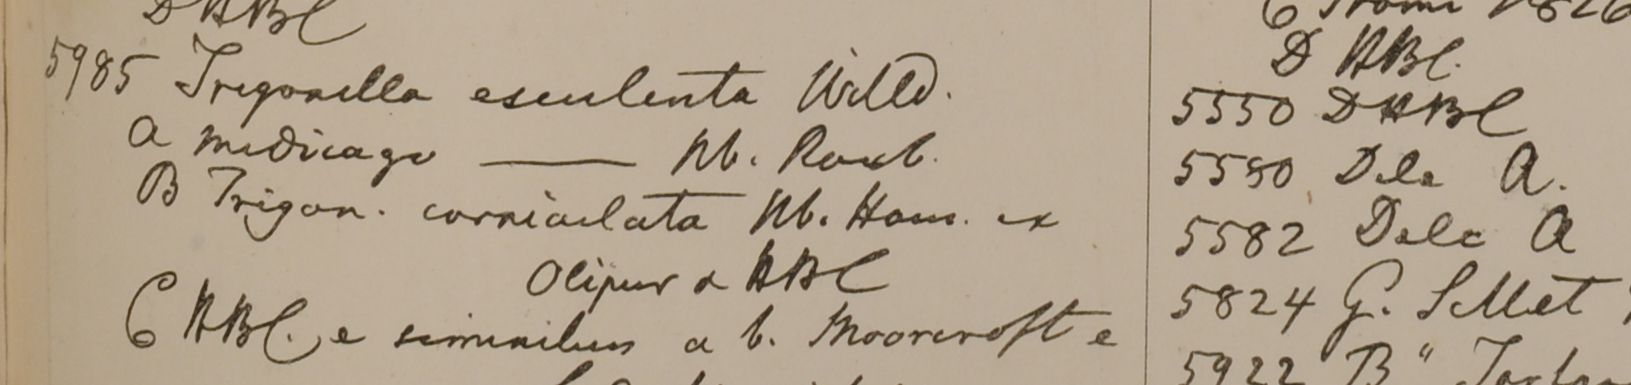 D HBC
5985 Trigonella esculenta Willd.
A Medicago —— Hb. Roxb.
B Trigon. corniculata Hb. Ham. ex
Olipur & HBC
C HBC. e seminibus a b. Moorcroft e
1826
D HBC.
5550 D HBC
5580 Dele A.
5582 Dele A
5824 G. Sillet
5922 B "